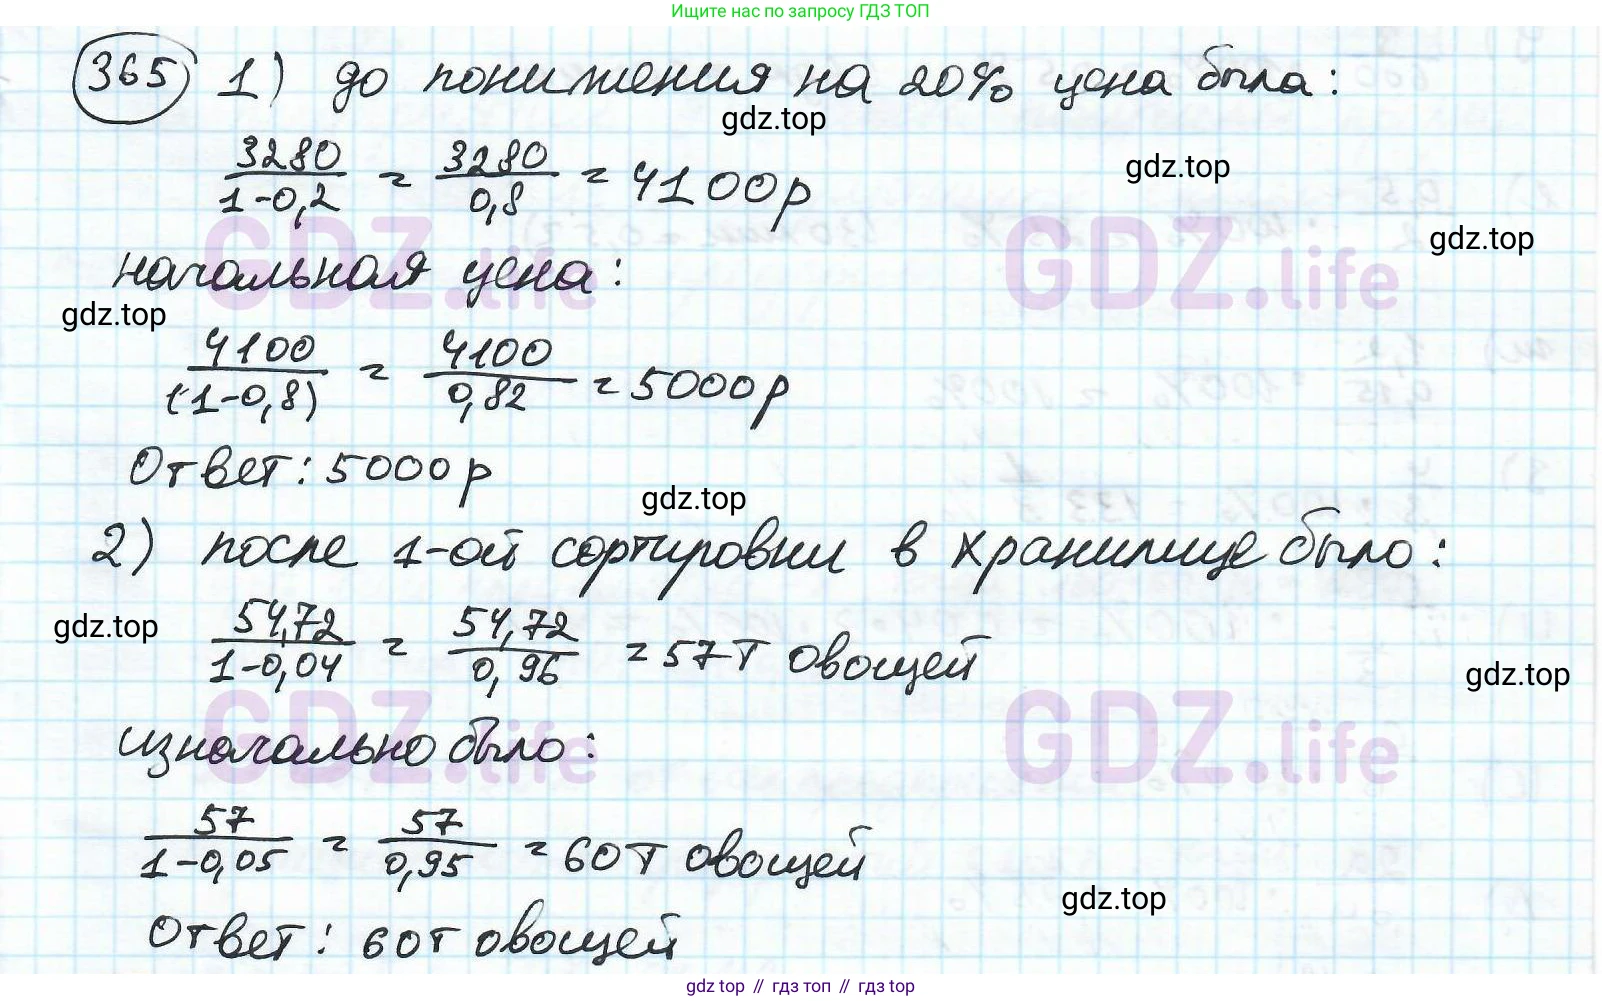 Ищите нас по запросу ГДЗ ТОП
365 1) до понижения на 20% цена была:
gdz.top
3280/1-0,2 = 3280/0,8 = 4100р
gdz.top
gdz.top
GDZ.life GDZ.life
начальная цена:
gdz.top
4100/(1-0,8) = 4100/0,82 = 5000р
Ответ: 5000р
gdz.top
2) после 1-ой сортировки в хранилище было:
gdz.top
54,72/1-0,04 = 54,72/0,96 = 57т овощей
gdz.top
GDZ.life GDZ.life
изначально было:
57/1-0,05 = 57/0,95 = 60т овощей
gdz.top
Ответ: 60т овощей
gdz.top // гдз топ // гдз top